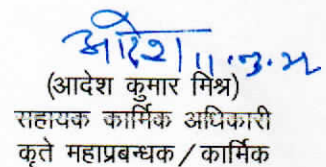 आदेश
(आदेश कुमार मिश्र)
सहायक कार्मिक अधिकारी
कृते महाप्रबन्धक/कार्मिक